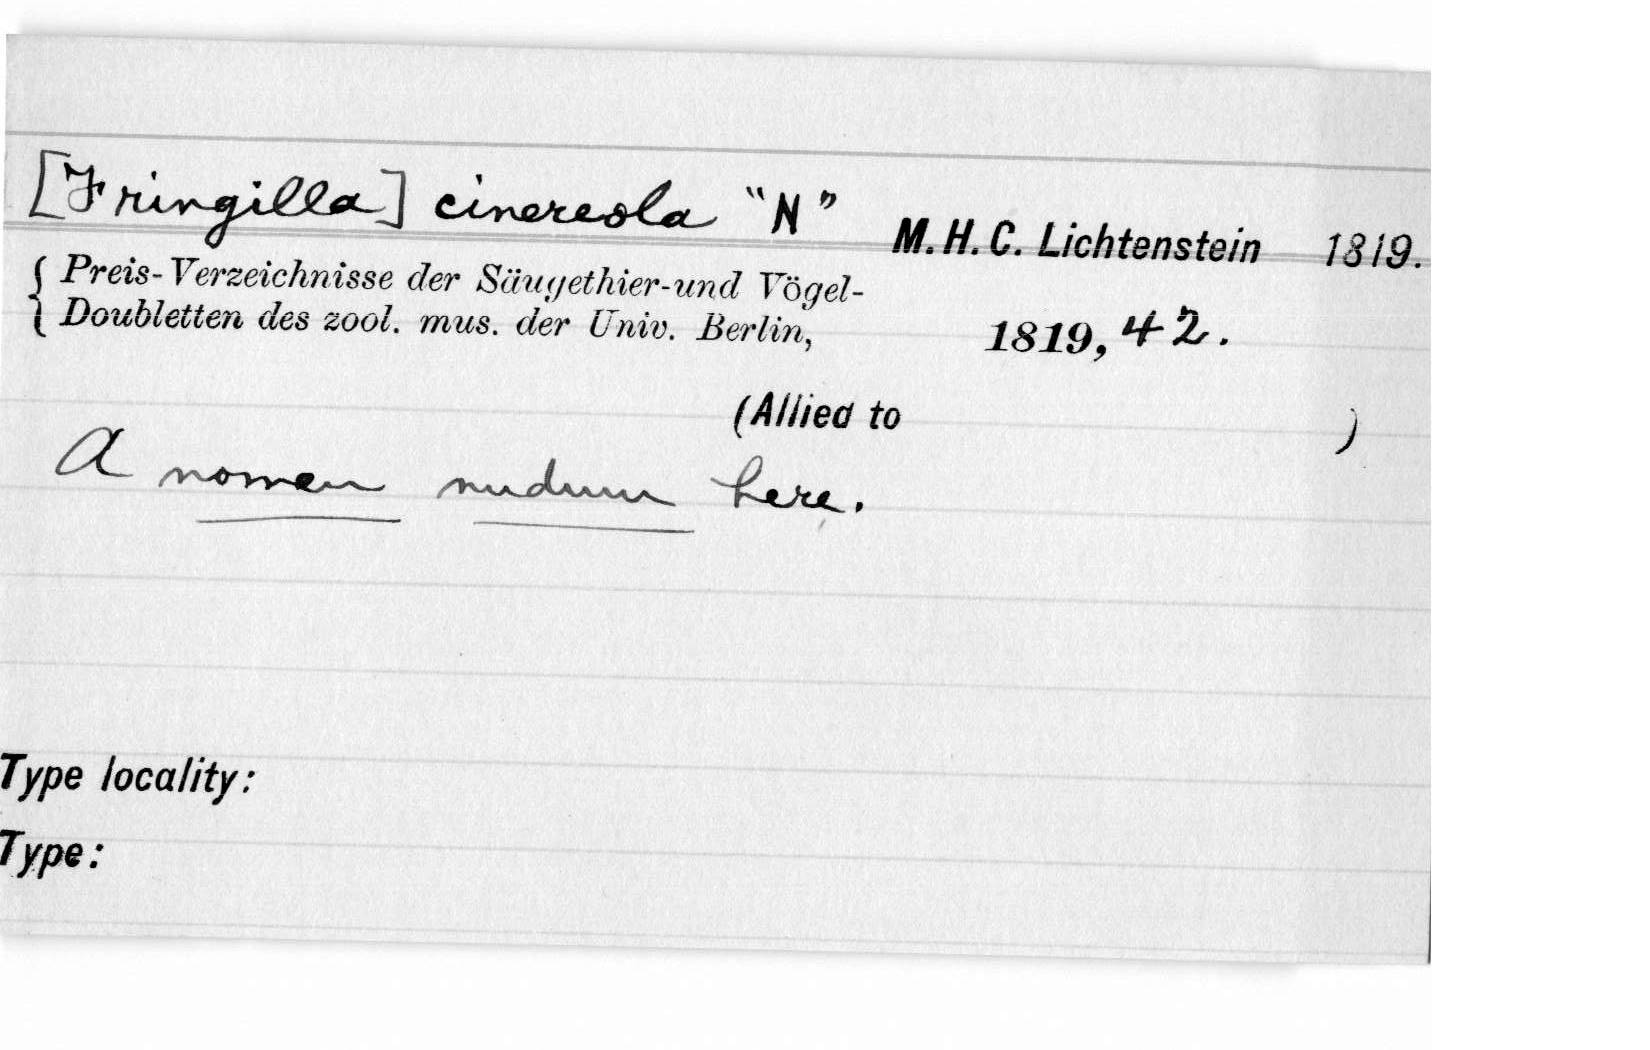 [Fringilla] cinereola "N" M. H. C. Lichtenstein 1819.
{ Preis-Verzeichnisse der Säugethier-und Vögel-
Doubletten des zool. mus. der Univ. Berlin, 1819, 42.
(Allied to )
A nomen nudum here.
Type locality:
Type: